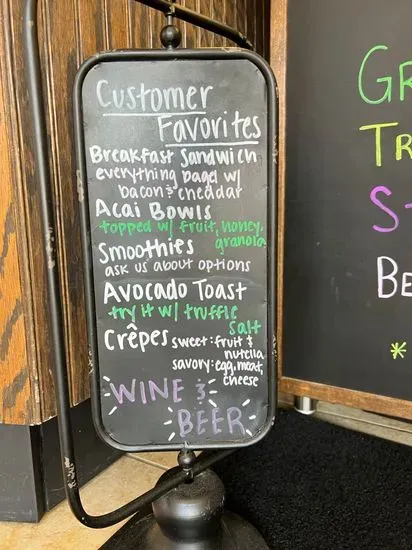 Customer
Favorites
Breakfast Sandwich
everything bagel w/
bacon & cheddar
Acai Bowls
topped w/ fruit, honey,
granola
Smoothies
ask us about options
Avocado Toast
try it w/ truffle
salt
Crêpes sweet: fruit &
nutella
savory: egg, meat,
cheese
WINE &
BEER